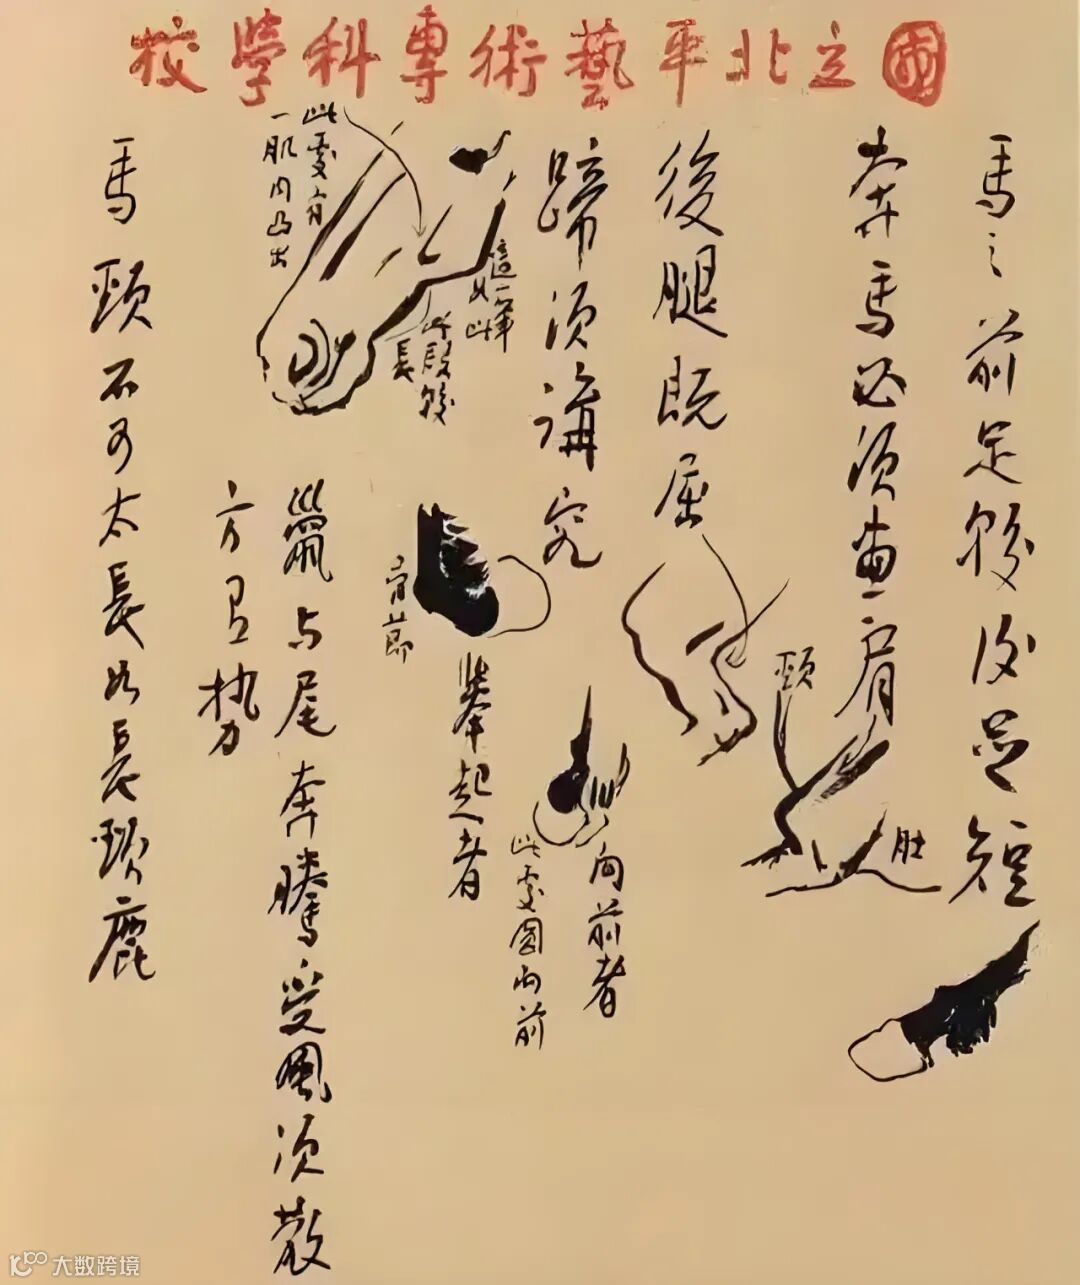 國立北平藝術專科學校
馬之前足較後足短
奔馬必須畫肩
頸
肚
後腿既屈
蹄須講究
向前者
此處圓向前
舉起者
骨節
這一筆
如此
此段較
長
此處有
一肌肉凸出
鬣与尾奔騰受風須散
方有勢
馬頸不可太長如長頸鹿
大数跨境